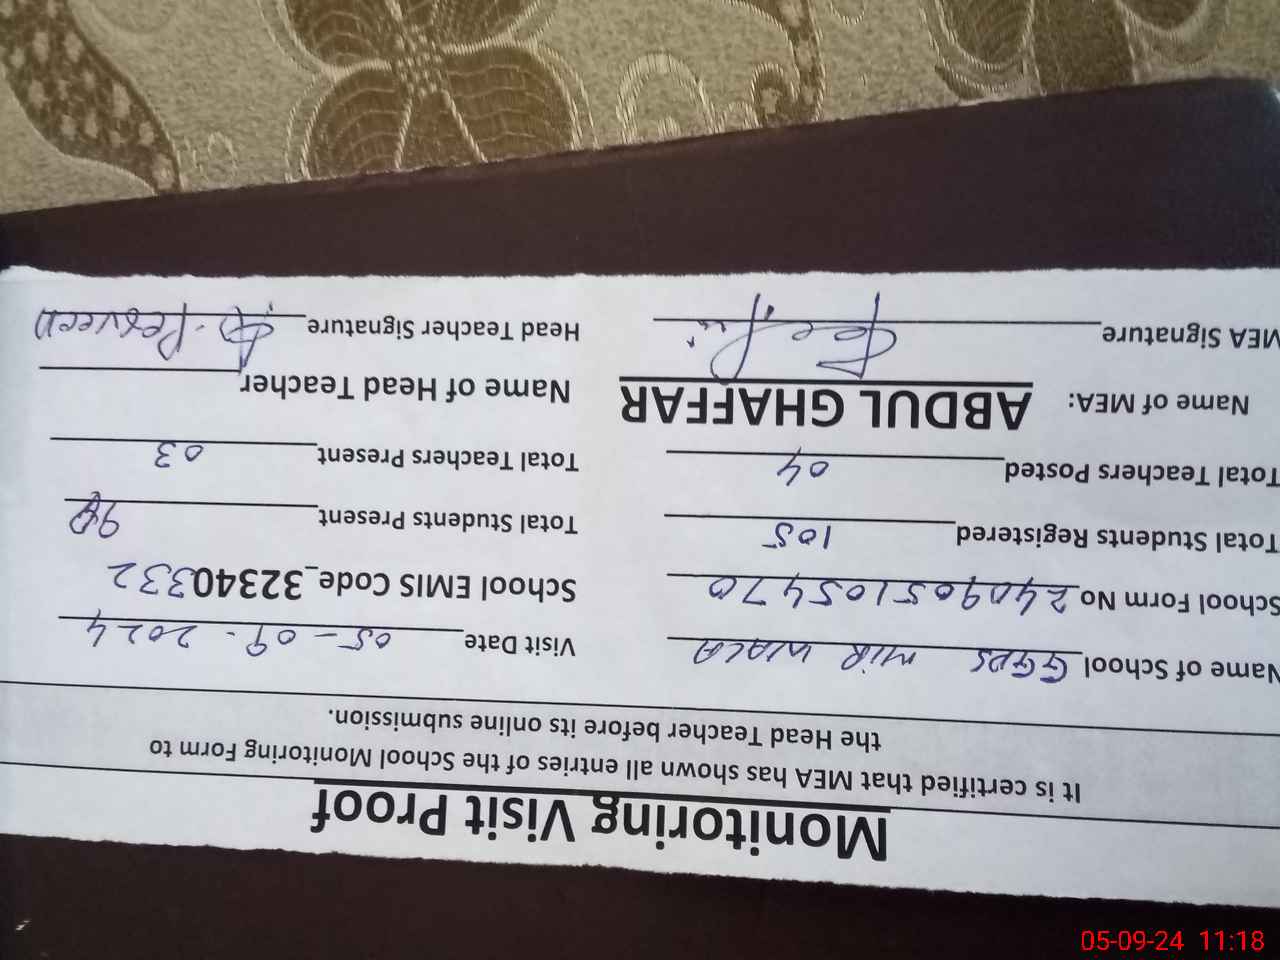 Monitoring Visit Proof
It is certified that MEA has shown all entries of the School Monitoring Form to
the Head Teacher before its online submission.
Name of School GGPS MIR WALA Visit Date 05-09-2024
School Form No 240905105470 School EMIS Code_32340332
Total Students Registered 105 Total Students Present
Total Teachers Posted 04 Total Teachers Present 03
Name of MEA: ABDUL GHAFFAR Name of Head Teacher
MEA Signature Head Teacher Signature Perveen
05-09-24 11:18